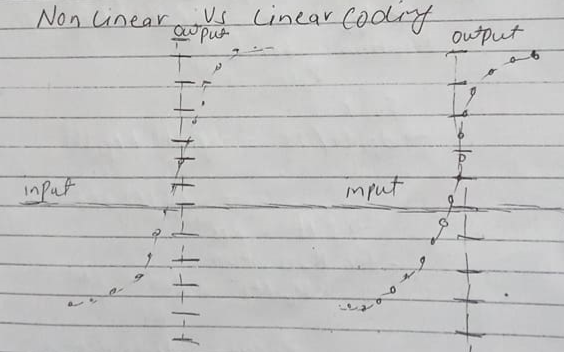 Non linear Vs linear Coding
output output
input input